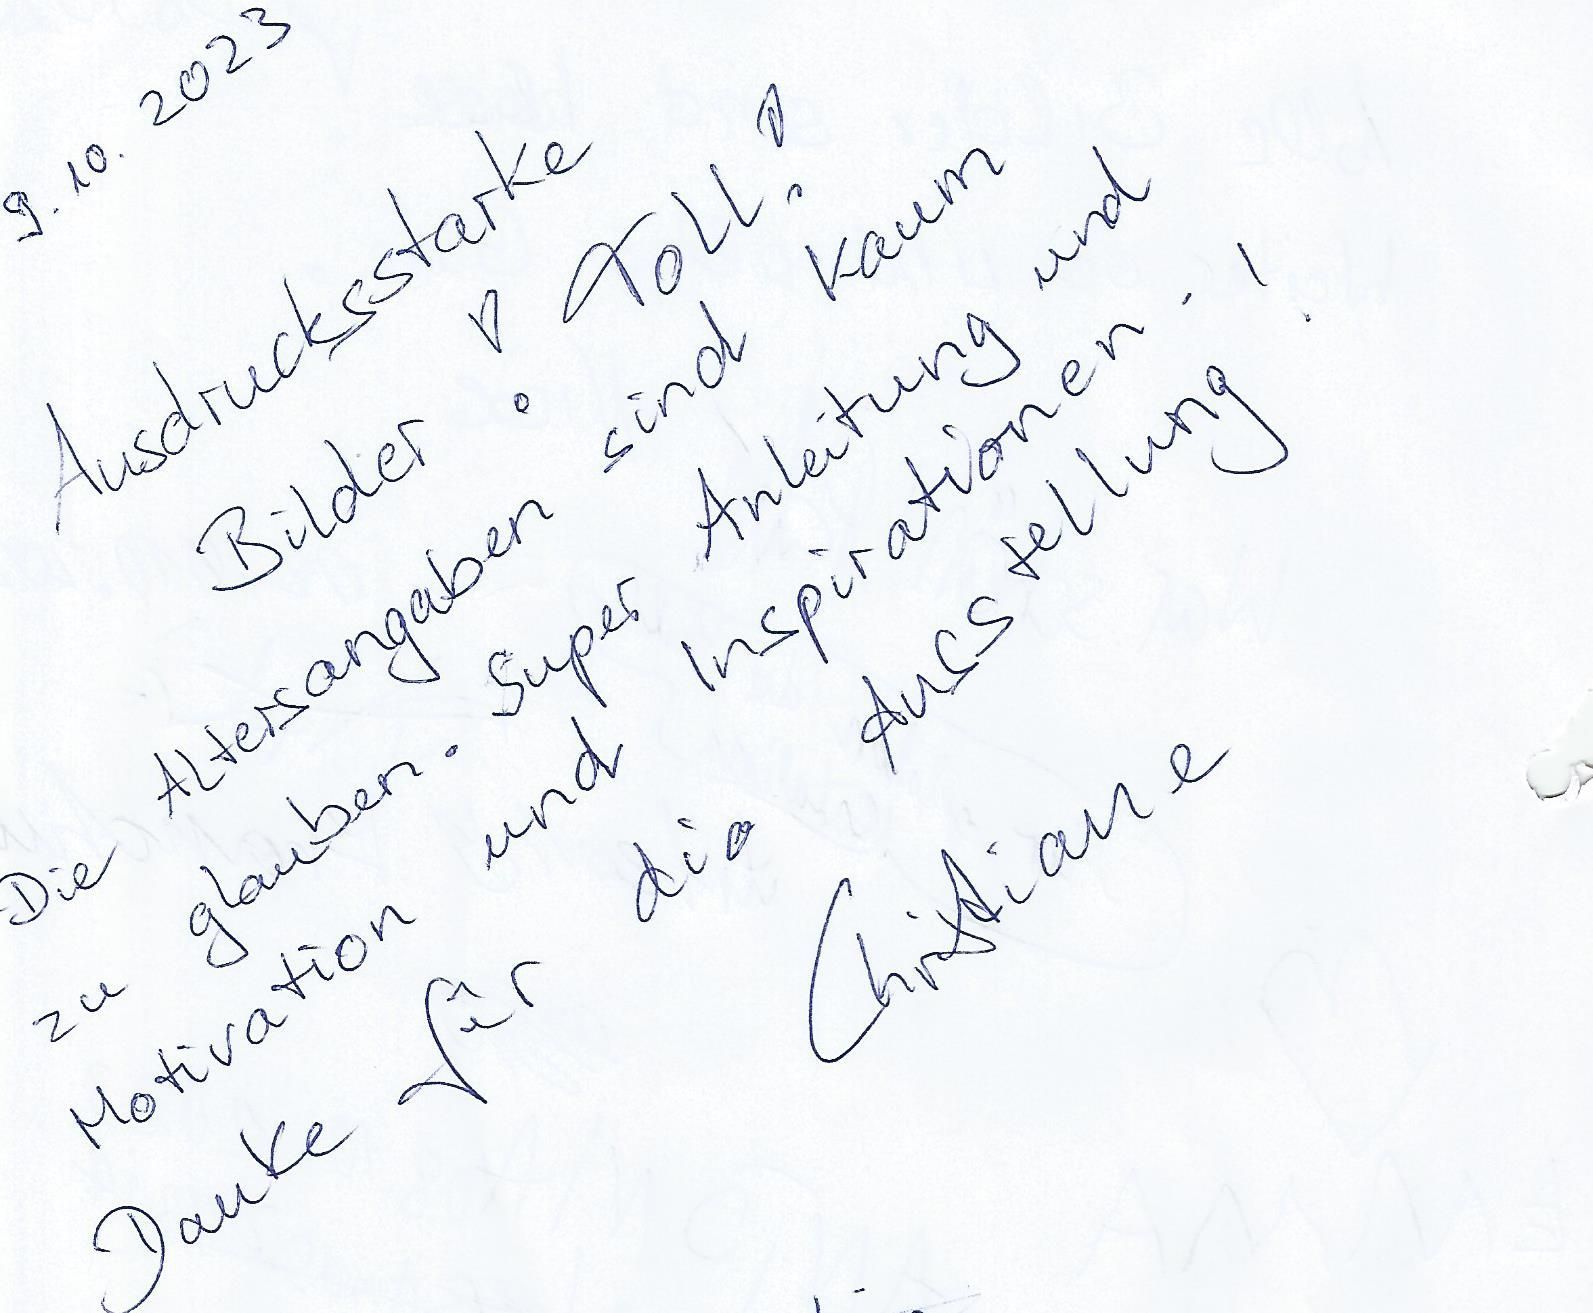 9.10.2023
Ausdrucksstarke
Bilder! Toll!
Die Altersangaben sind kaum
zu glauben. Super Anleitung und
Motivation und Inspirationen.
Danke für die Ausstellung!
Christiane